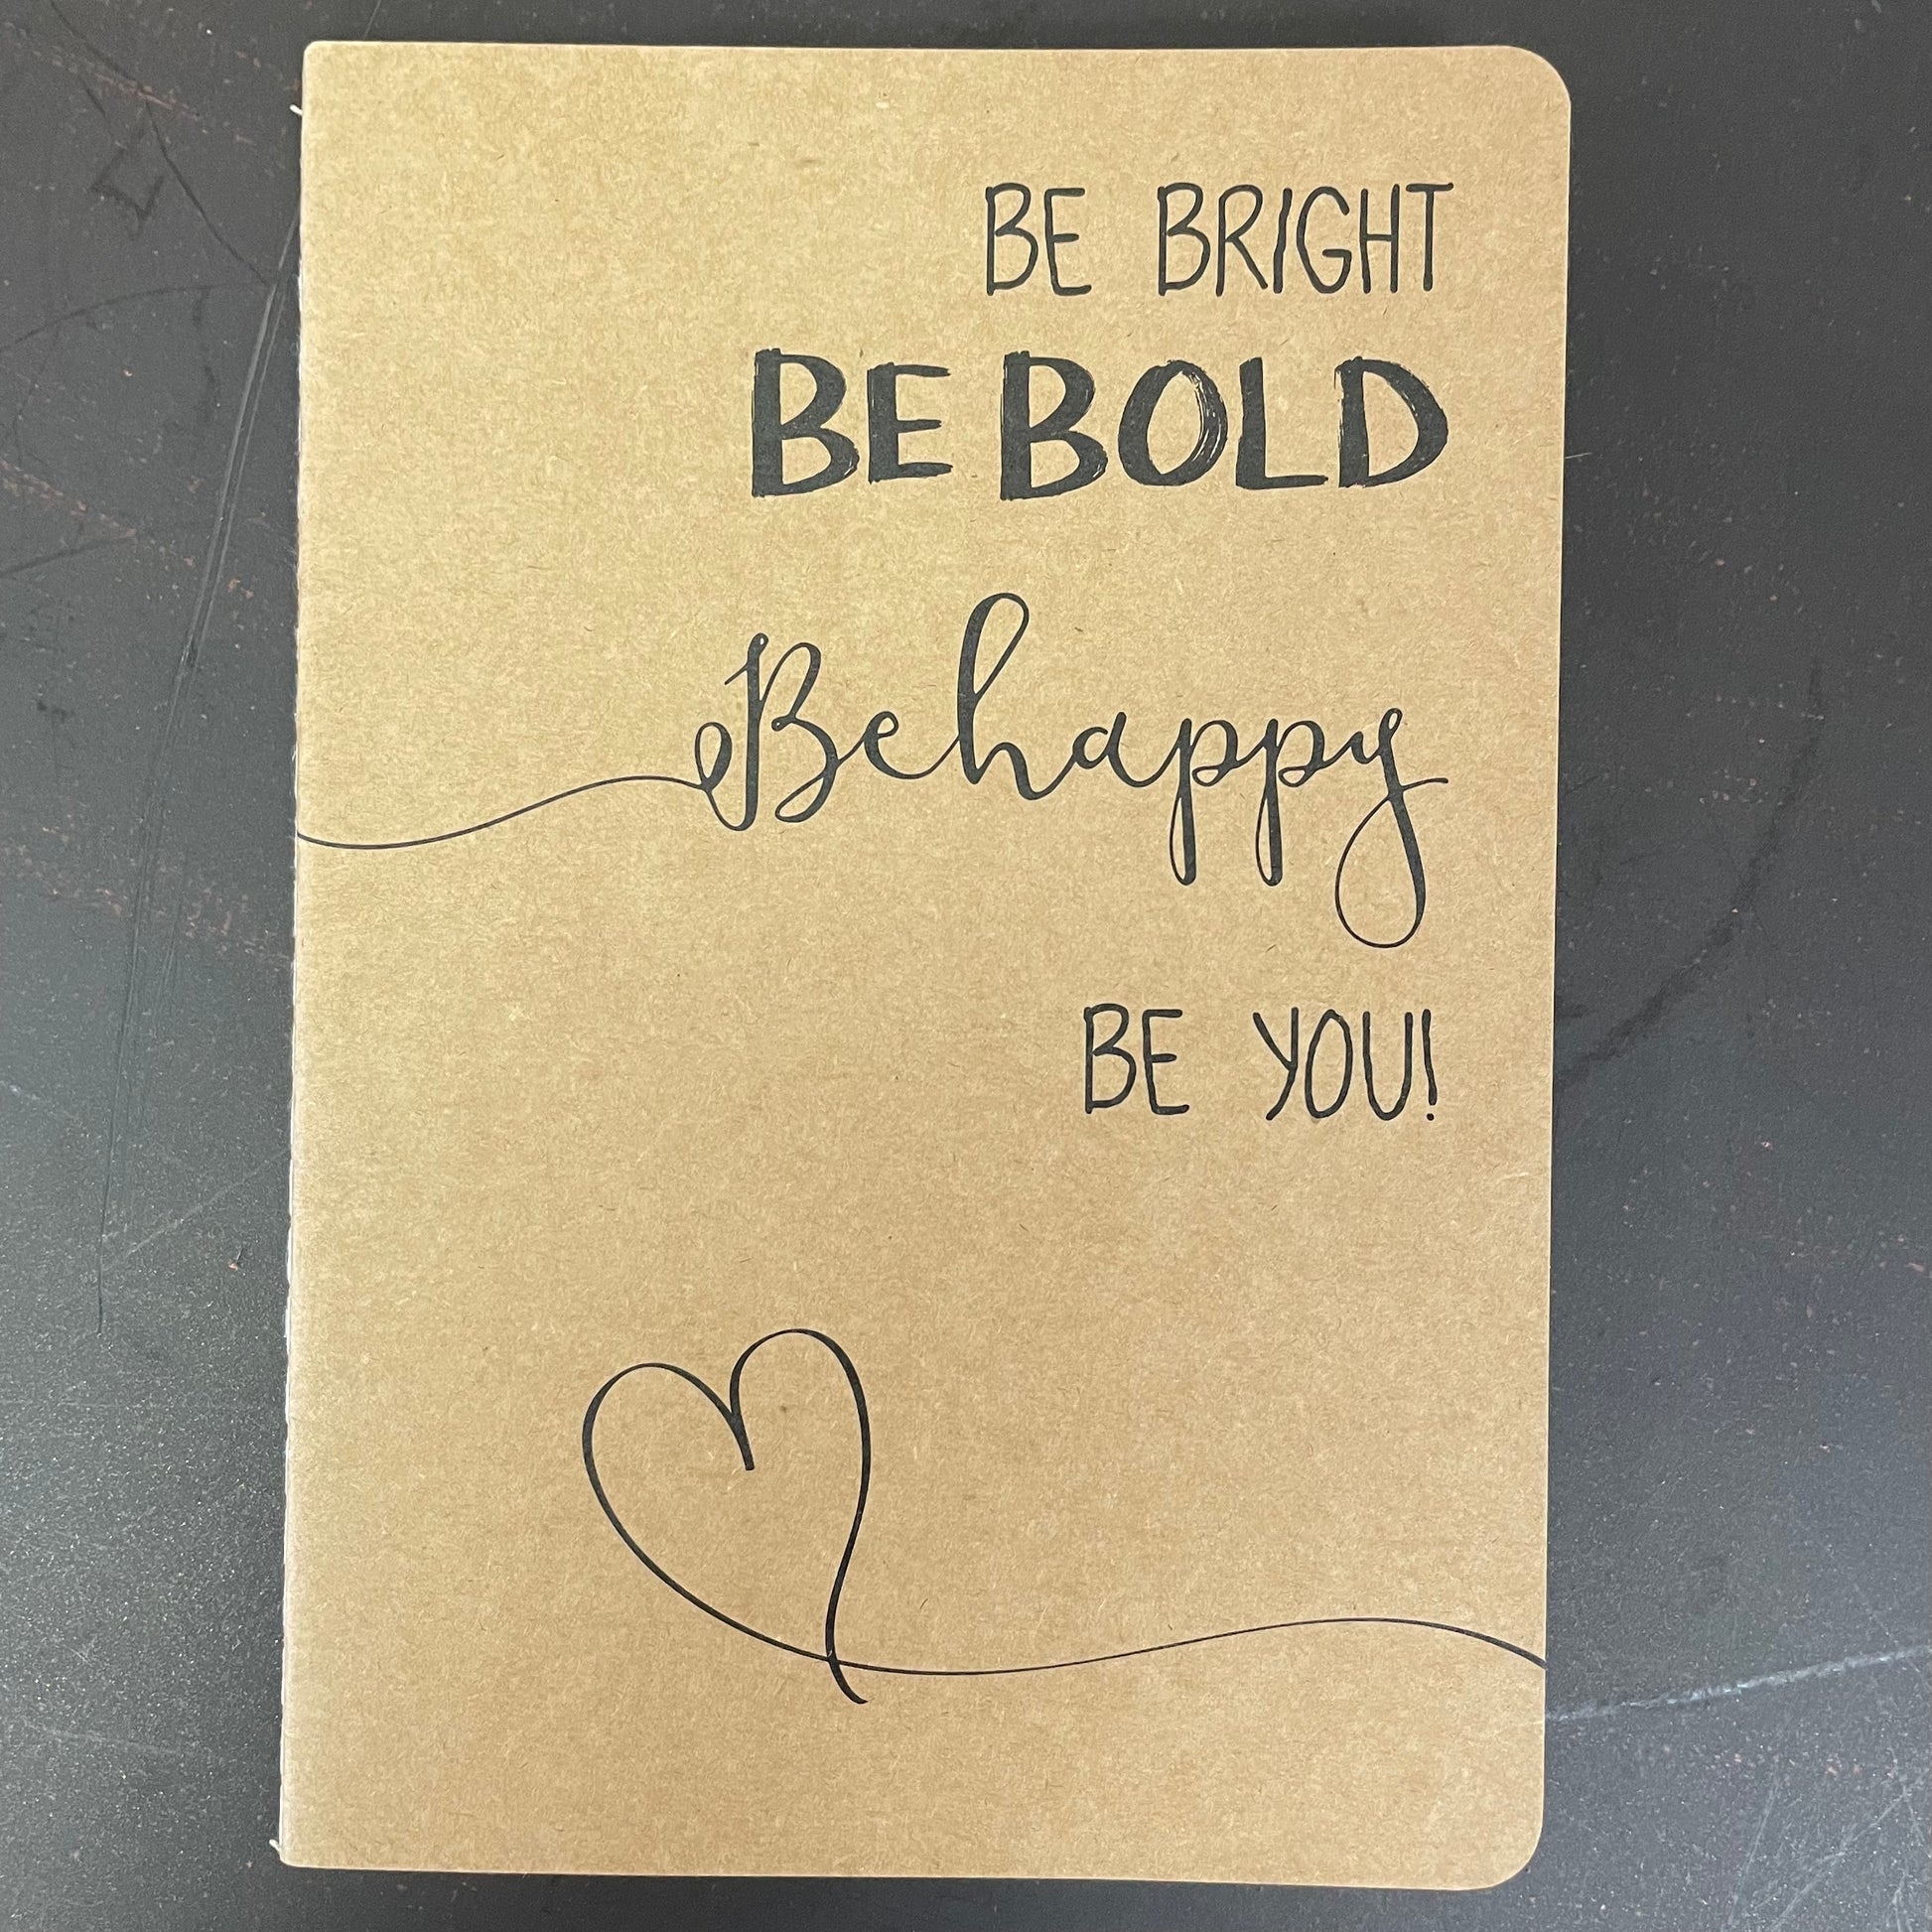 BE BRIGHT
BE BOLD
Be happy
BE YOU!